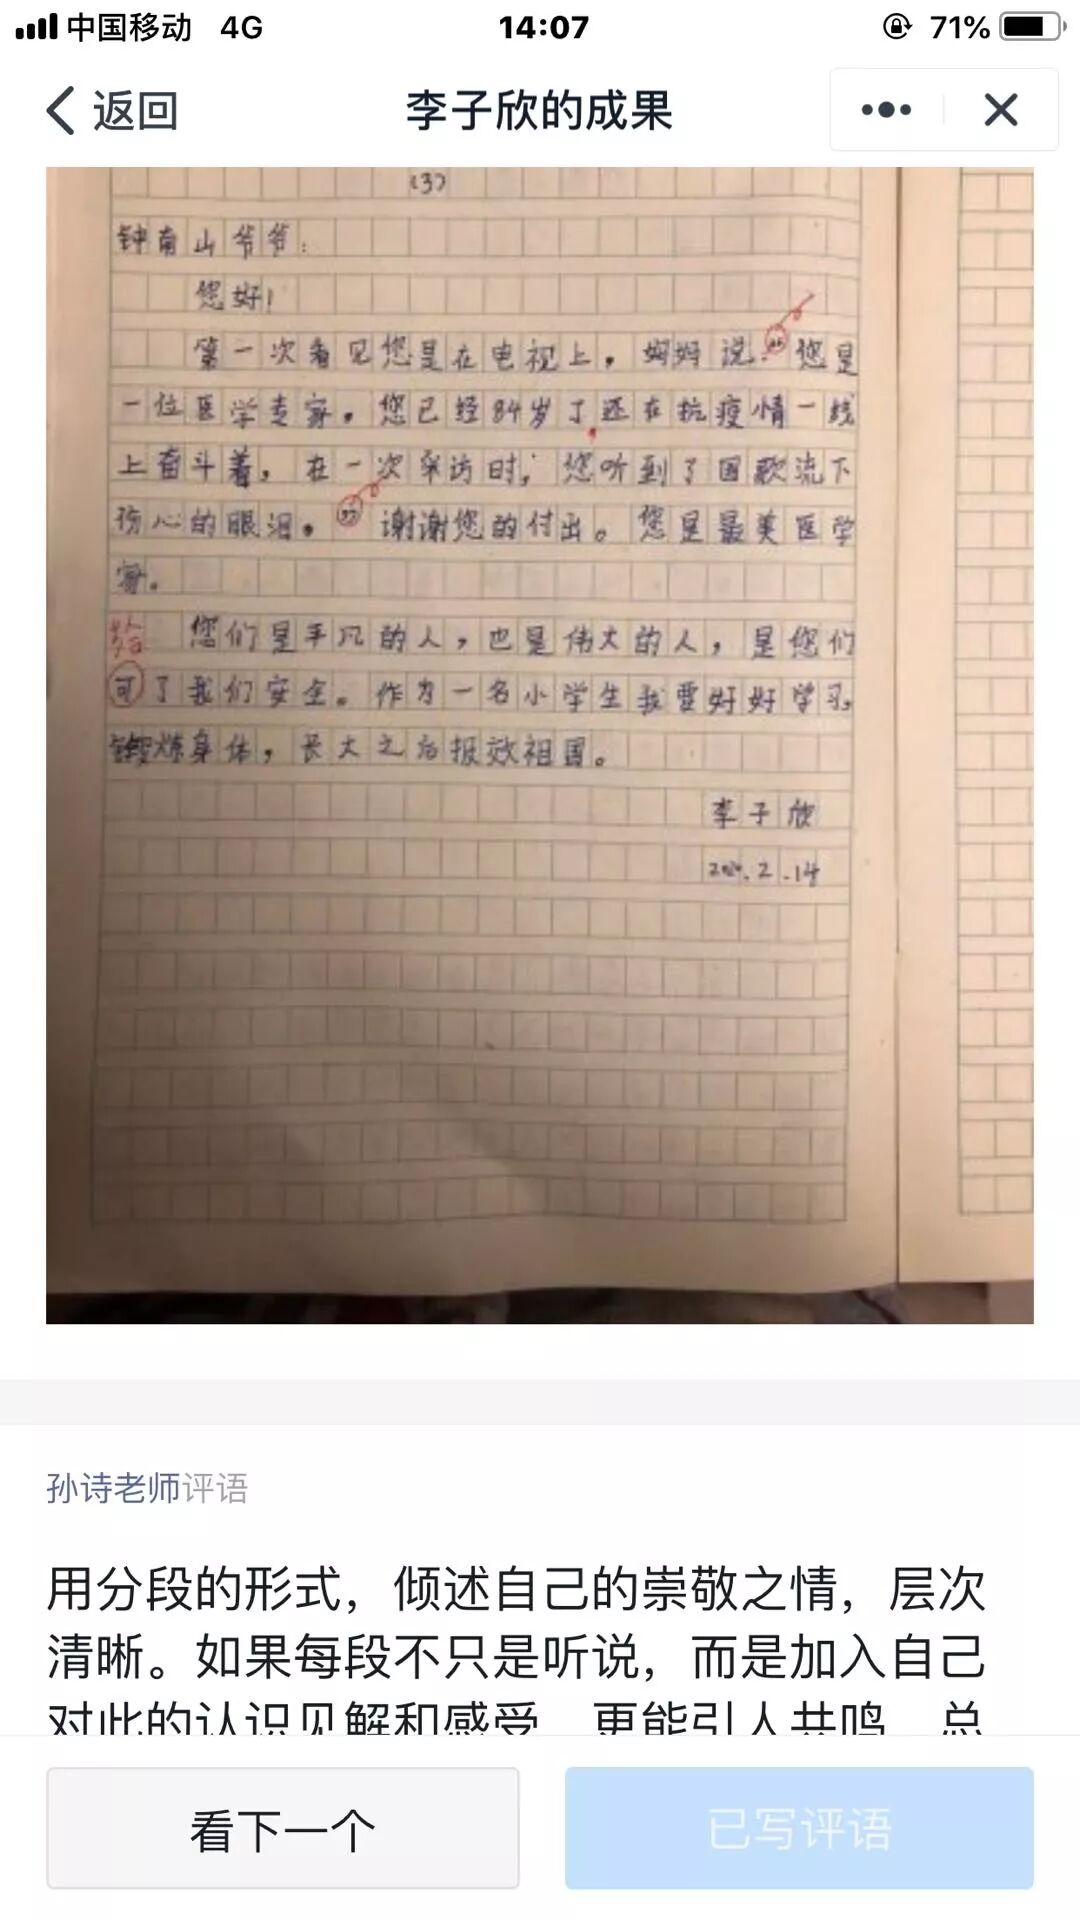 中国移动 4G 14:07 71%
返回 李子欣的成果
(3)
钟南山爷爷：
您好！
第一次看见您是在电视上，妈妈说：您是
一位医学专家。您已经84岁了还在抗疫情一线
上奋斗着，在一次采访时，您听到了国歌流下
伤心的眼泪。谢谢您的付出。您是最美医学
家。
给 您们是平凡的人，也是伟大的人，是您们
可了我们安全。作为一名小学生我要好好学习，
锻炼身体，长大之后报效祖国。
李子欣
2020.2.14
孙诗老师评语
用分段的形式，倾述自己的崇敬之情，层次
清晰。如果每段不只是听说，而是加入自己
对此的认识见解和感受，更能引人共鸣。总
看下一个 已写评语